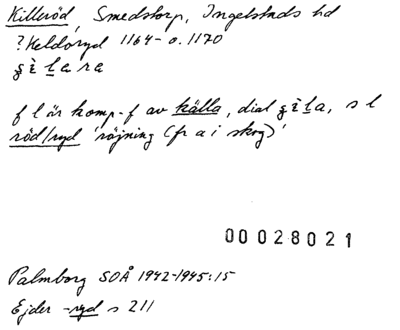 Killeröd, Smedstorp, Ingelstads hd
?Keldoryd 1164- o. 1170
f l är komp-f av källa, dial , s l
röd/ryd 'röjning (fr a i skog)'
00028021
Palmborg SOÅ 1942-1945:15
Ejder -ryd s 211